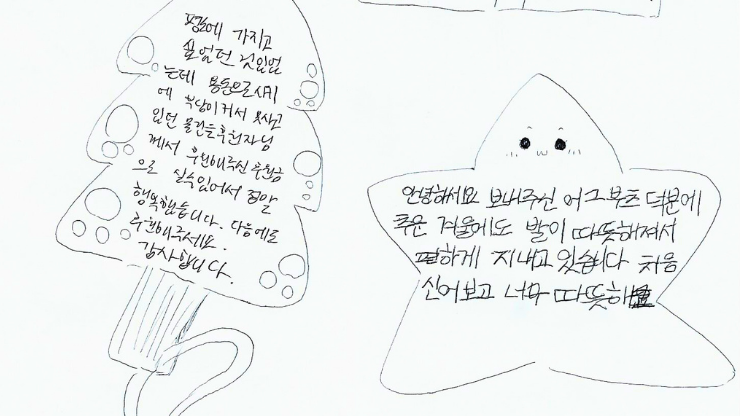 평소에 가지고
싶었던 것있었
는데 용돈으로사기
에 부담이커서 못사고
있던 물건들후원자님
께서 후원해주신 후원금
으로 살수있어서 정말
행복했습니다. 다음에도
후원해주세요.
감사합니다.
안녕하세요 보내주신 어그부츠 덕분에
추운 겨울에도 발이 따뜻해져서
편하게 지내고 있습니다 처음
신어보고 너무 따뜻해